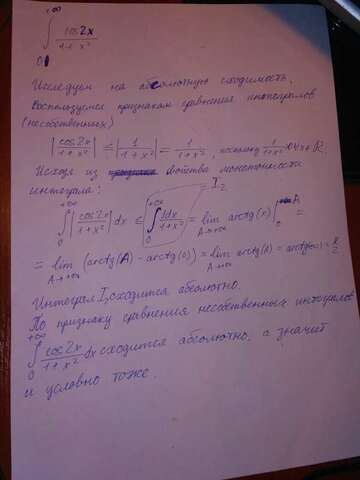 +∞
∫ cos2x / 1+x²
0
Исследуем на абсолютную сходимость.
Воспользуемся признаком сравнения интегралов
(несобственных)
|cos2x / 1+x²| ≤ |1 / 1+x²| = 1 / 1+x², поскольку 1/1+x² > 0 ∀x∈R.
Исходя из свойства монотонности
интеграла:
+∞ ∫ 0 |cos2x / 1+x²| dx ≤ +∞ ∫ 0 1dx / 1+x² = I₂ = lim A→+∞ arctg(x) | A 0 =
= lim A→+∞ (arctg(A) - arctg(0)) = lim A→+∞ arctg(A) - arctg(0) = π/2
Интеграл I₂ сходится абсолютно.
По признаку сравнения несобственных интегралов
+∞ ∫ 0 cos2x / 1+x² dx сходится абсолютно, а значит
и условно тоже.